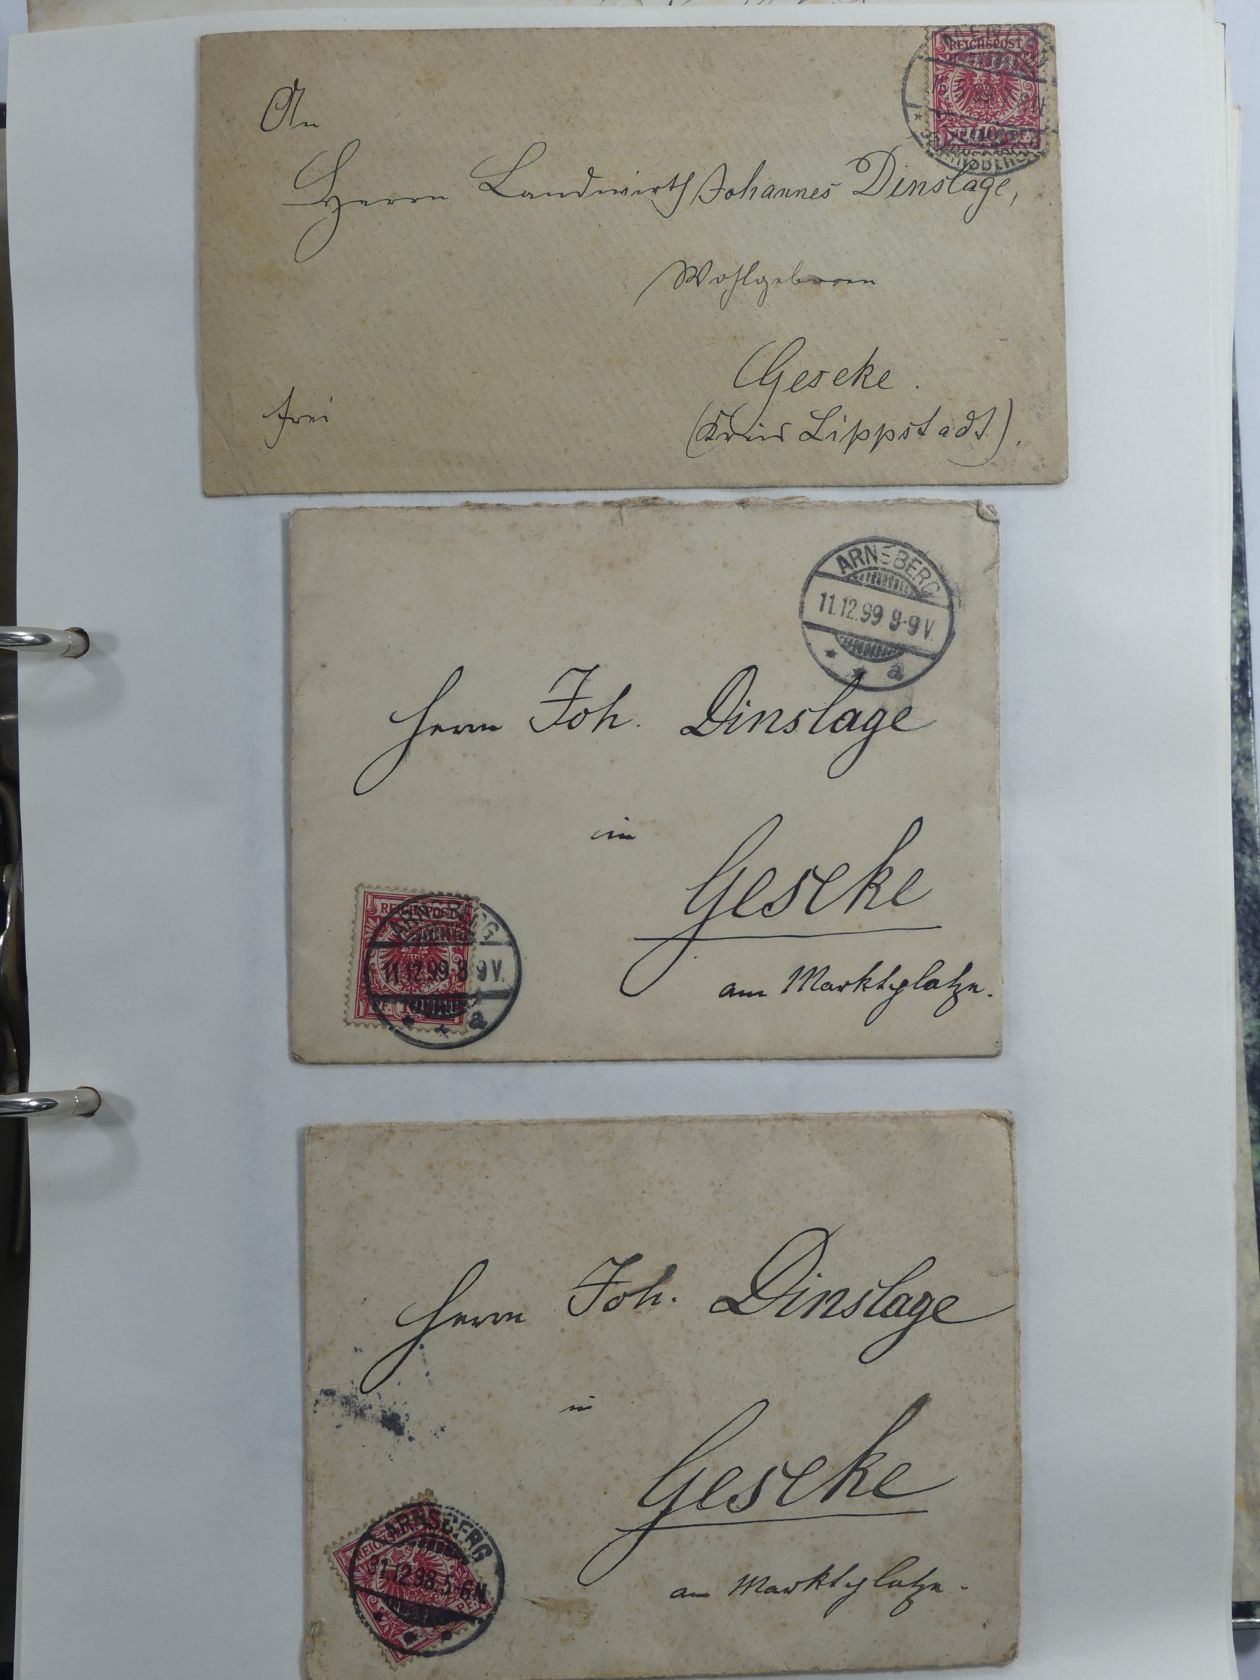 REICHSPOST
10
PF.
An
Herrn Landwirth Johannes Dinslage,
Wohlgeboren
Geseke.
frei
(Kreis Lippstadt).
ARNSBERG
11.12.99 8-9V.
a
Herrn Joh. Dinslage
in
Geseke
am Marktplatze.
REICHSPOST
ARNSBERG
11.12.99 8-9V.
a
Herrn Joh. Dinslage
in
Geseke
am Marktplatze.
ARNSBERG
31.12.98 5-6N
PF.